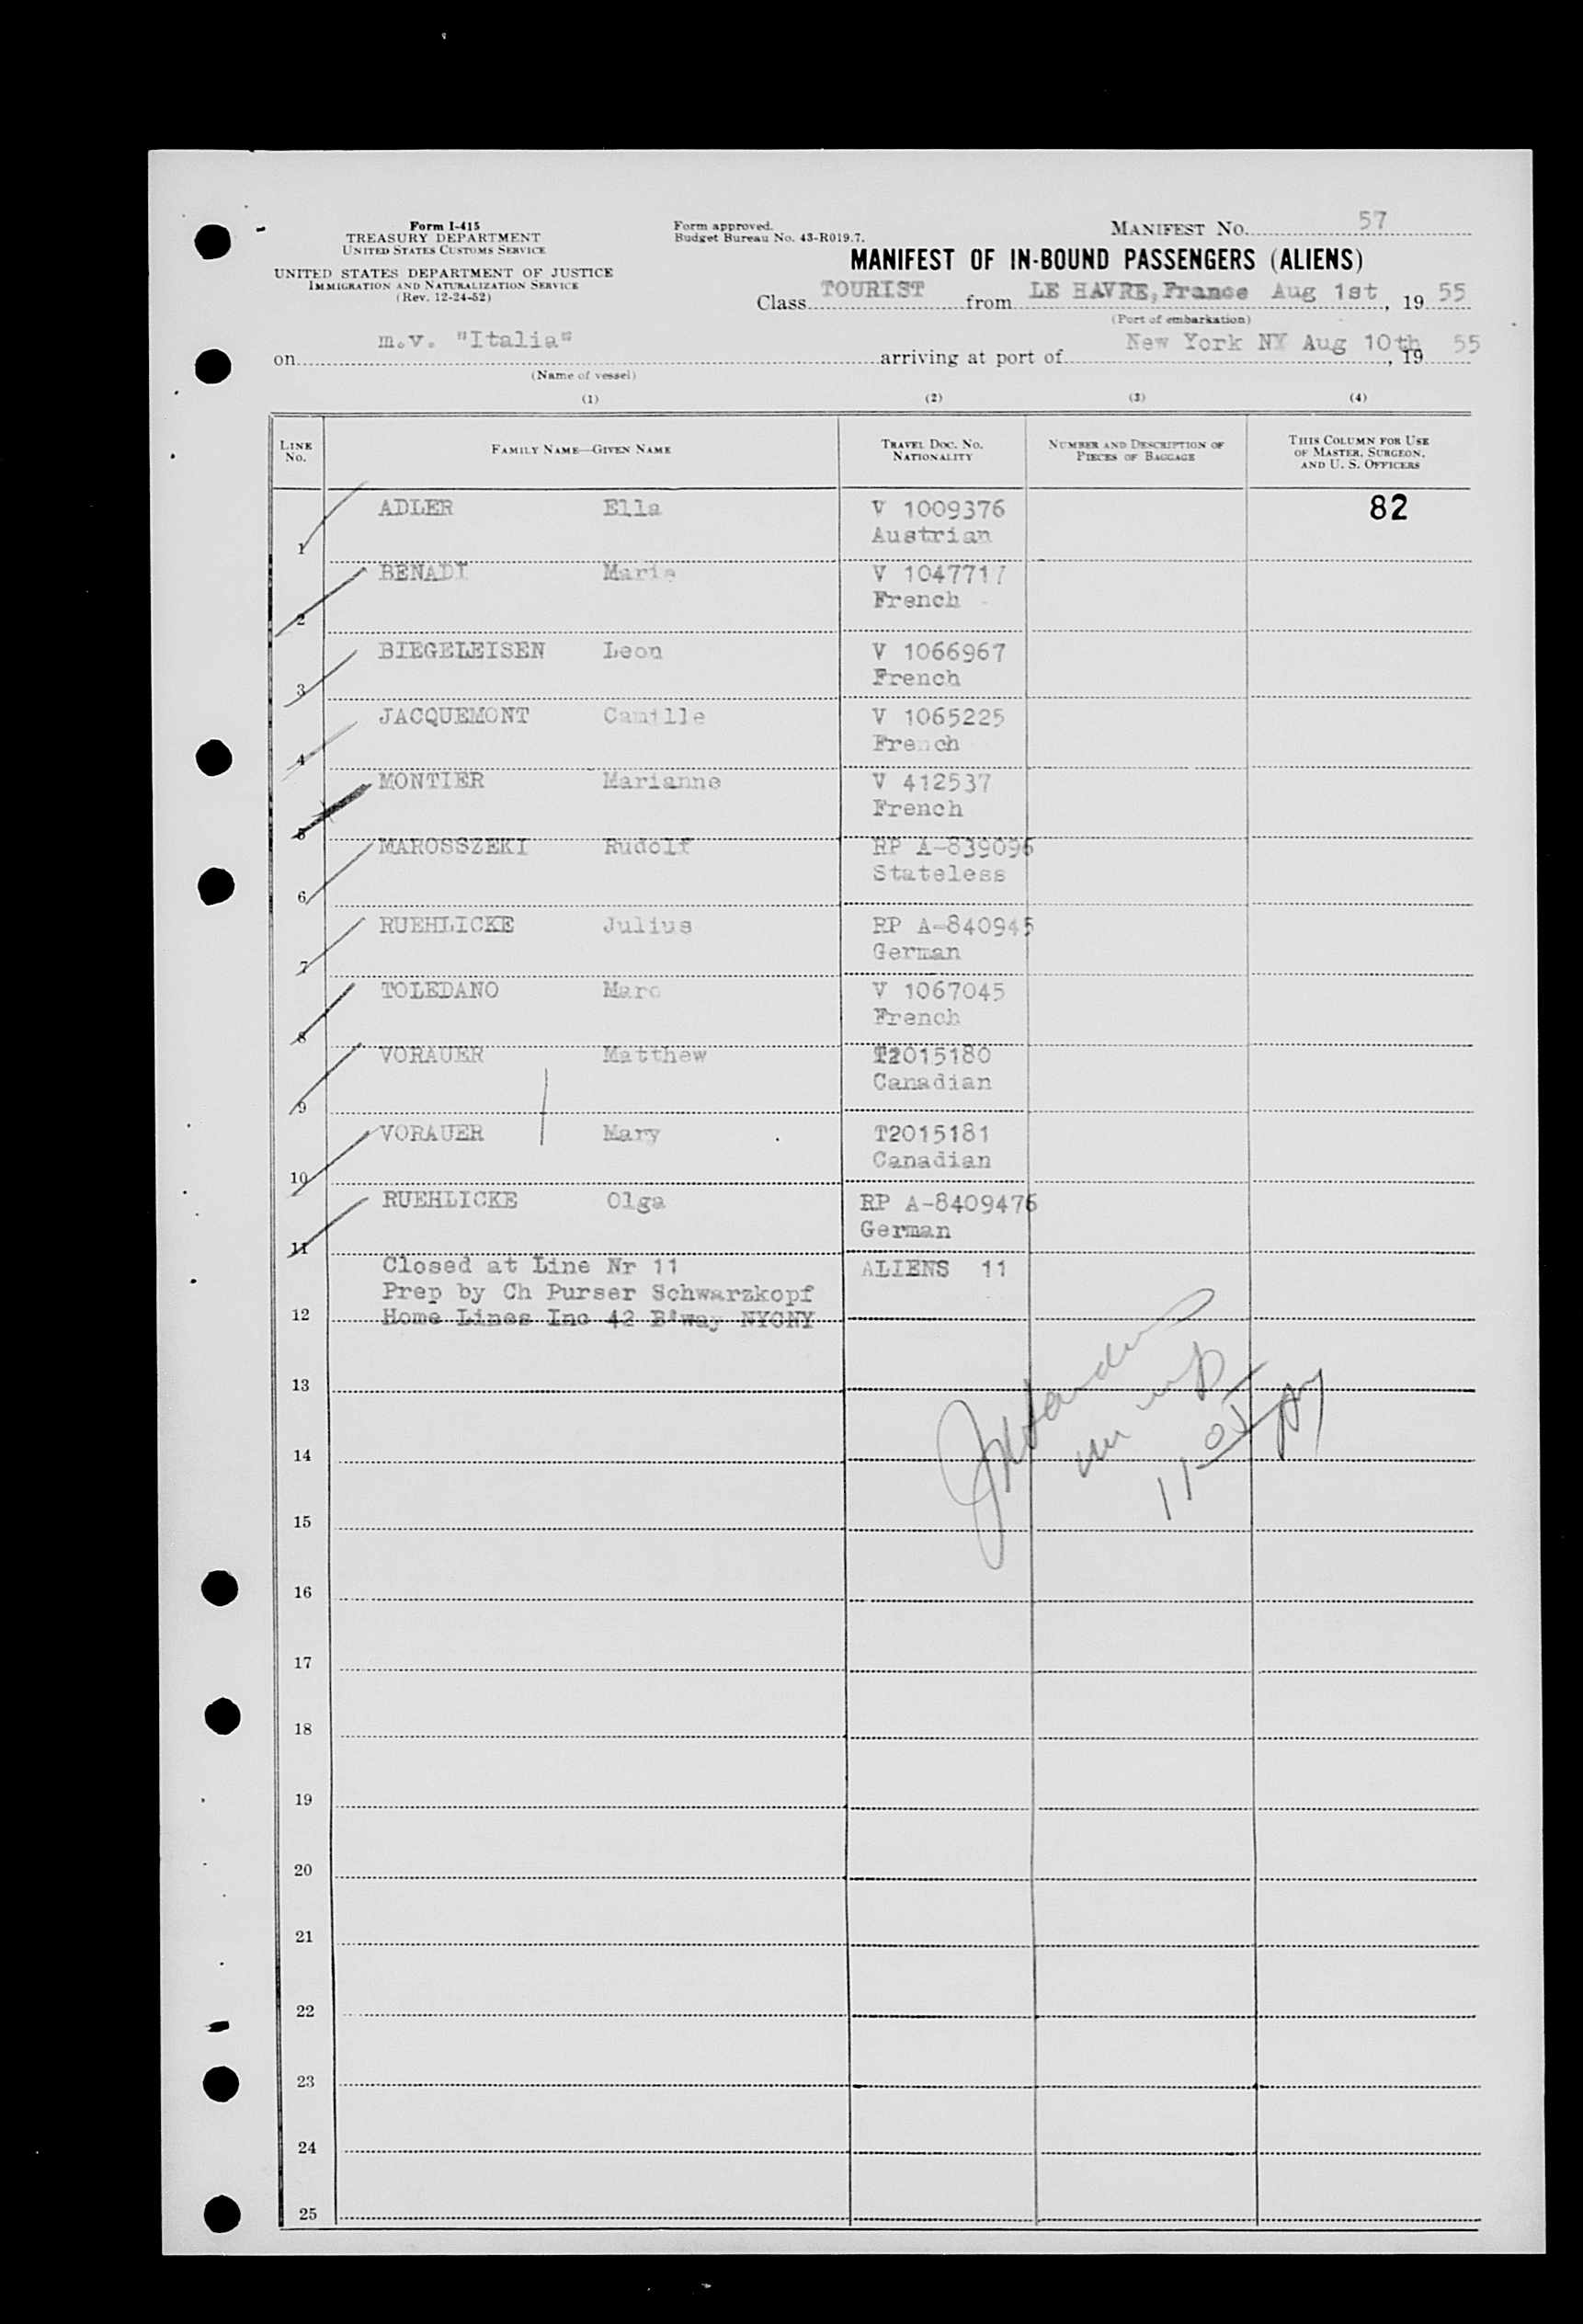 Form I-415
TREASURY DEPARTMENT
UNITED STATES CUSTOMS SERVICE
UNITED STATES DEPARTMENT OF JUSTICE
IMMIGRATION AND NATURALIZATION SERVICE
(Rev. 12-24-52)
Form approved.
Budget Bureau No. 43-R019.7.
MANIFEST No. 57
MANIFEST OF IN-BOUND PASSENGERS (ALIENS)
Class TOURIST from LE HAVRE, France Aug 1st, 19 55
(Port of embarkation)
on m.v. "Italia" arriving at port of New York NY Aug 10th, 19 55
(Name of vessel)
(1) (2) (3) (4)
LINE No. FAMILY NAME—GIVEN NAME TRAVEL DOC. NO. NATIONALITY NUMBER AND DESCRIPTION OF PIECES OF BAGGAGE THIS COLUMN FOR USE OF MASTER, SURGEON, AND U. S. OFFICERS
1 ADLER Ella V 1009376 82
Austrian
2 BENADI Marie V 1047717
French
3 BIEGELEISEN Leon V 1066967
French
4 JACQUEMONT Camille V 1065225
French
5 MONTIER Marianne V 412537
French
6 MAROSSZEKI Rudolf RP A-839096
Stateless
7 RUEHLICKE Julius RP A-840945
German
8 TOLEDANO Marc V 1067045
French
9 VORAUER Matthew T2015180
Canadian
10 VORAUER Mary T2015181
Canadian
11 RUEHLICKE Olga RP A-8409476
German
Closed at Line Nr 11 ALIENS 11
Prep by Ch Purser Schwarzkopf
12 Home Lines Inc 42 B'way NYCNY
13
14
15
16
17
18
19
20
21
22
23
24
25